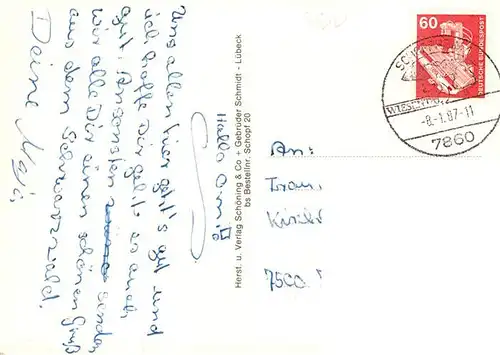 Hallo Omi!
Uns allen hier geht's gut und
ich hoffe Dir geht es auch
gut. Ansonsten senden
wir alle Dir einen schönen Gruß
aus dem Schwarzwald.
Deine
Herst. u. Verlag Schöning & Co + Gebrüder Schmidt - Lübeck
bs Bestellnr. Schopf 20
60
DEUTSCHE BUNDESPOST
-8.-1.87-11
7860
An:
Frau
7500